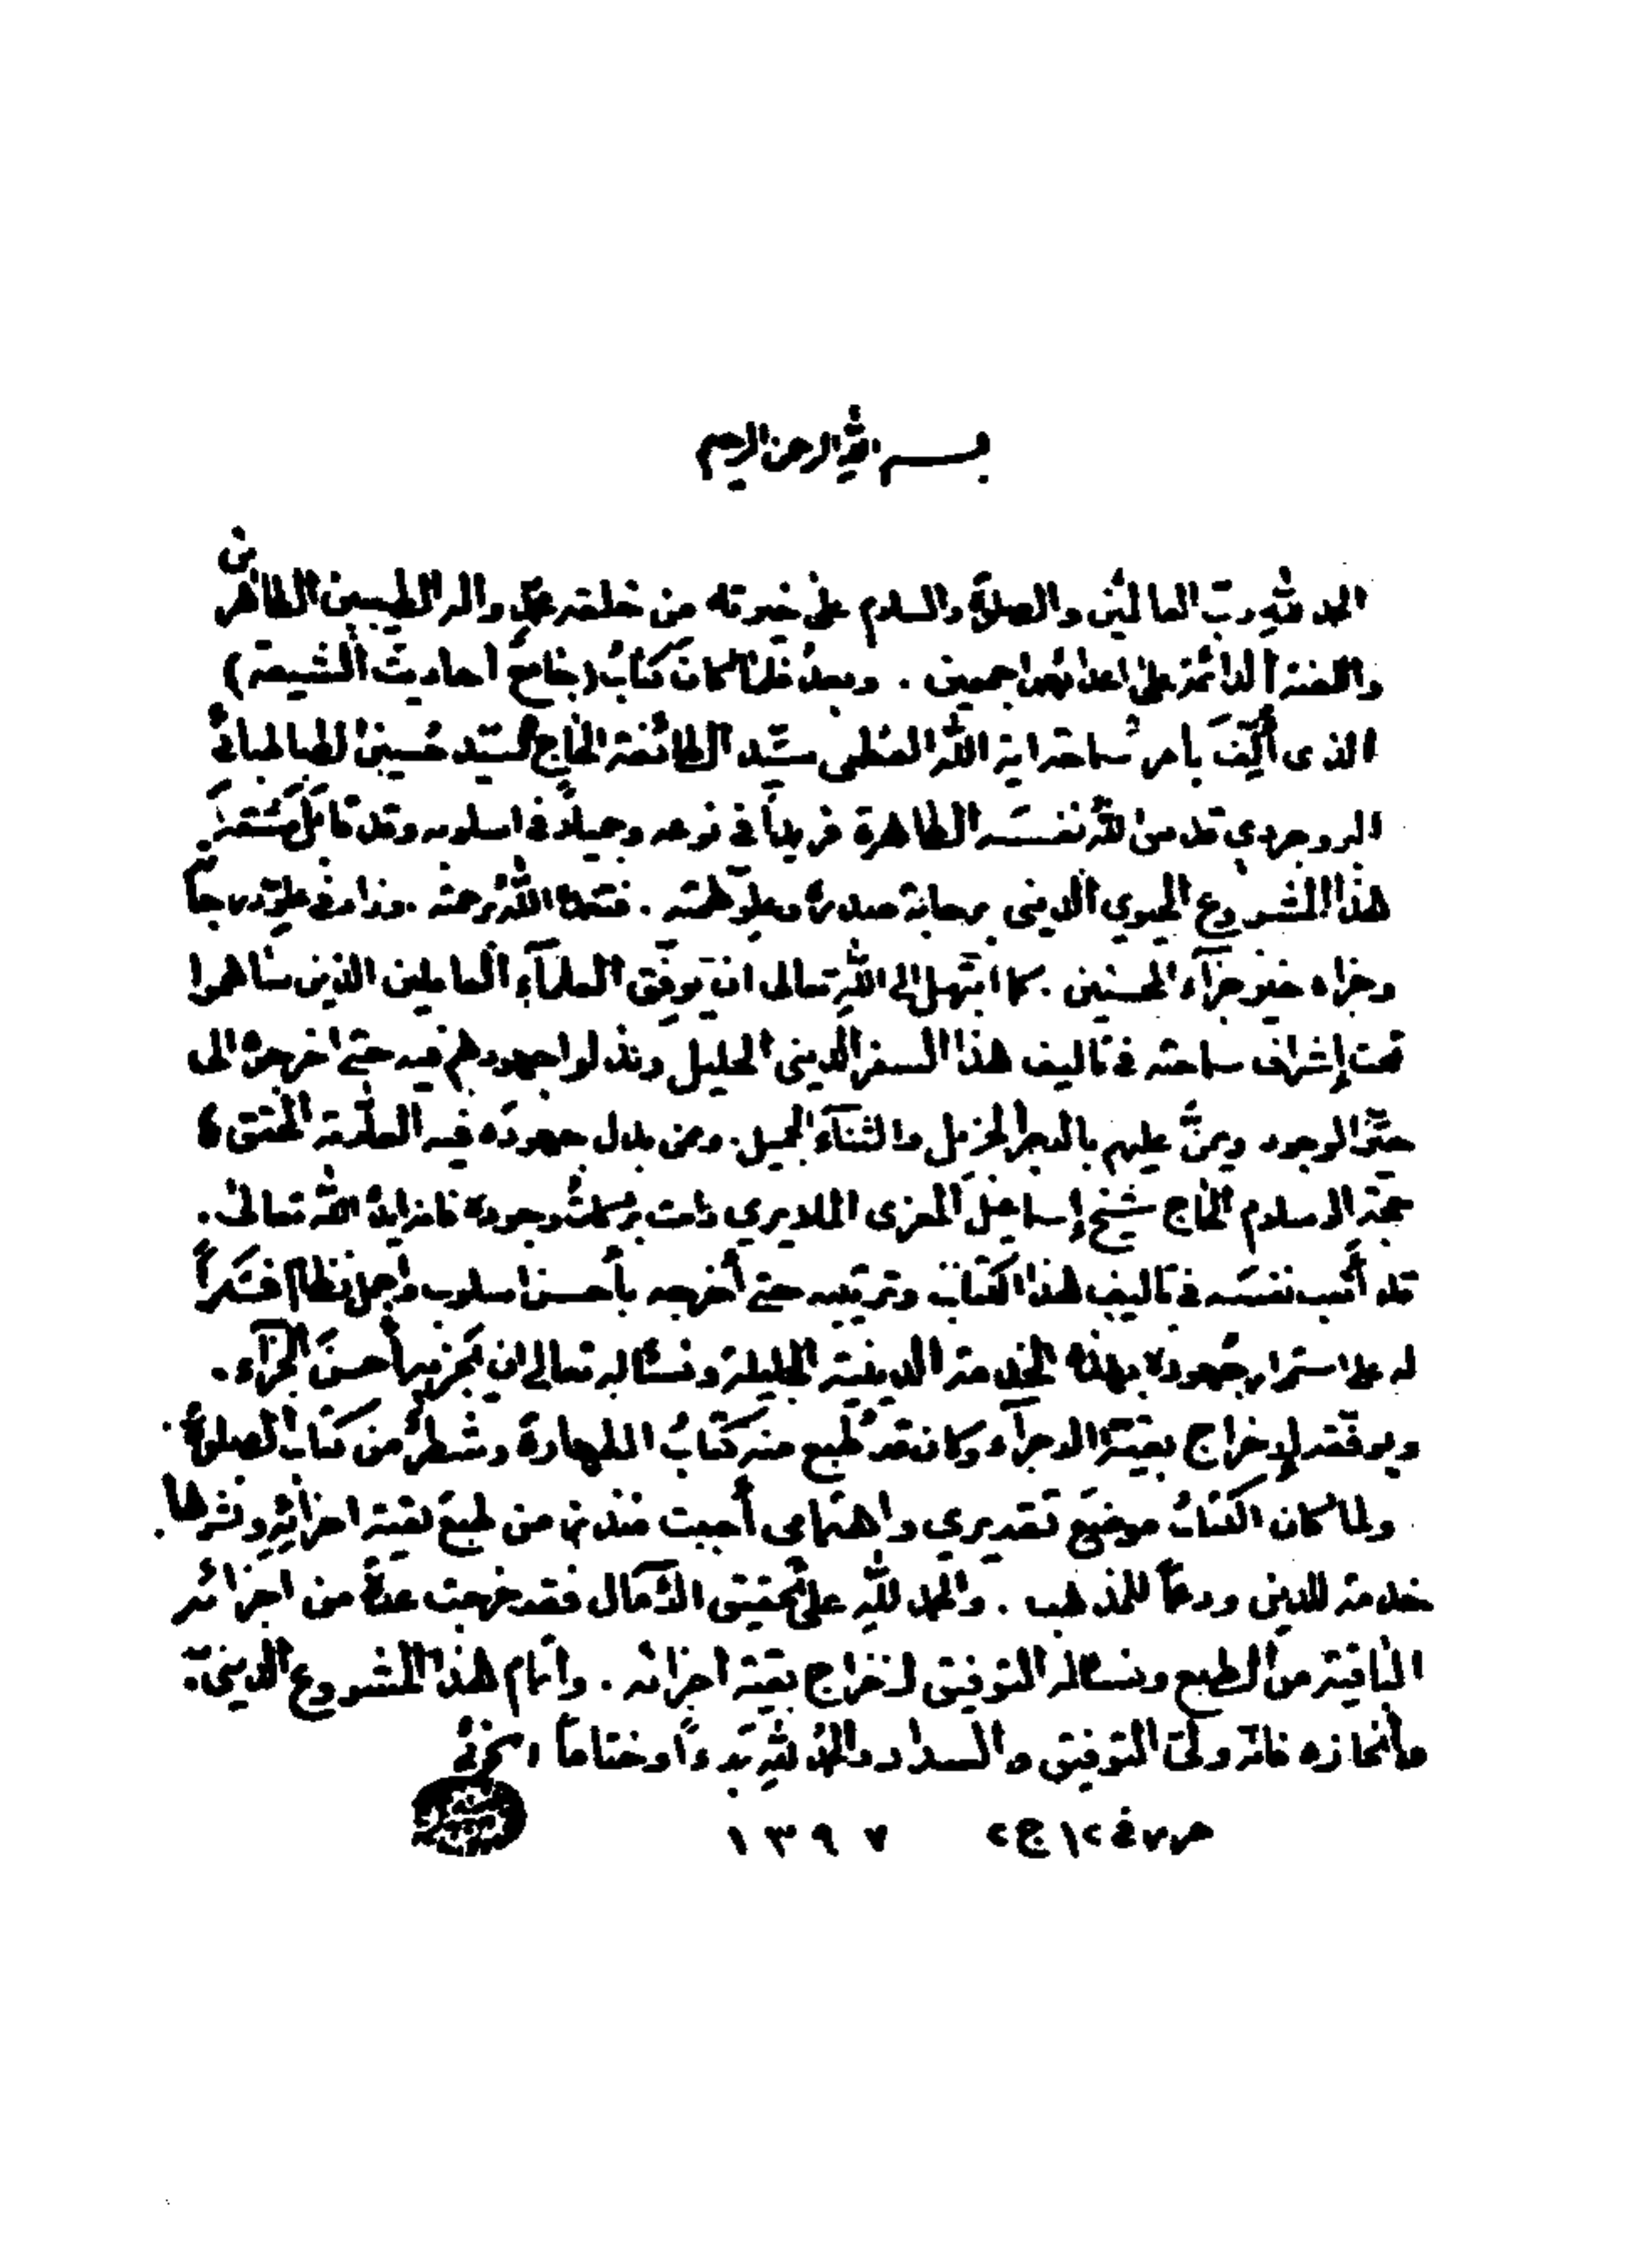 بسم الله الرحمن الرحيم
الحمد لله رب العالمين والصلوة والسلام على خيرته من خلقه محمد واله الطيبين الطاهرين
واللعنة الدائمة على اعدائهم اجمعين . وبعدُ فلما كان كتابُ (جامع احاديث الشيعة)
الذى أُلِّفَ بامر سماحة اية الله العظمى سيّد الطائفة الحاج السيّد حسين الطباطبائي
البروجردي قدس الله نفسه الطاهرة فريداً في نوعه وجميلاً في اسلوبه وقد قام بمُستَهَلِّ
هذا المشروع الحيوي الديني برحابة صدره وعلوّ همّته . فتغمده الله برحمته . وزاد في علوّ درجاته
وجزاه خير جزآء المحسنين . كما ابتهل الى الله تعالى ان يوفّق العلمآء العاملين الذين ساهموا
تحت إشراف سماحته في تاليف هذا السفر الديني الجليل وبذلوا جهودهم فيه حتى اخرجوه الى
حيّز الوجود ويمنَّ عليهم بالاجر الجزيل والثنآء الجميل . وممن بذل جهوده فيه العلّامة المحقق
حجة الاسلام الحاج شيخ إسماعيل المعزى الملايري دامت بركات وجوده فانه ايده الله تعالى .
قد أتعب نفسَه في تاليف هذا الكتاب وترتيبه حتى أخرجه بأحسن اسلوب وأجمل نظام فشكراً
له على استمرار جهوده بهذه الخدمة الدينية الجليلة ونسأله تعالى ان يجزيه أحسنَ الجزآء .
ويوفقه لإخراج بقية الاجزآء وكان قد طُبع منه كتابُ الطهارة وشطرٌ من كتاب الصلوة .
ولما كان الكتابُ موضعَ تقديري واهتمامى أحببت منذ زمن طبعَ بقية اجزائه ونشرها .
خدمة للدين ودعماً للمذهب . والحمد لله على تحقيق الآمال فقد خرجت عدّة من اجزائه
الباقية من الطبع ونسأله التوفيق لاخراج بقية اجزائه . واتمام هذا المشروع الديني .
وأنجازه فانه ولىّ التوفيق والسداد والحمد لله بدءاً وختاماً الخوئي
في ٢١ ج٢ ١٣٩٧